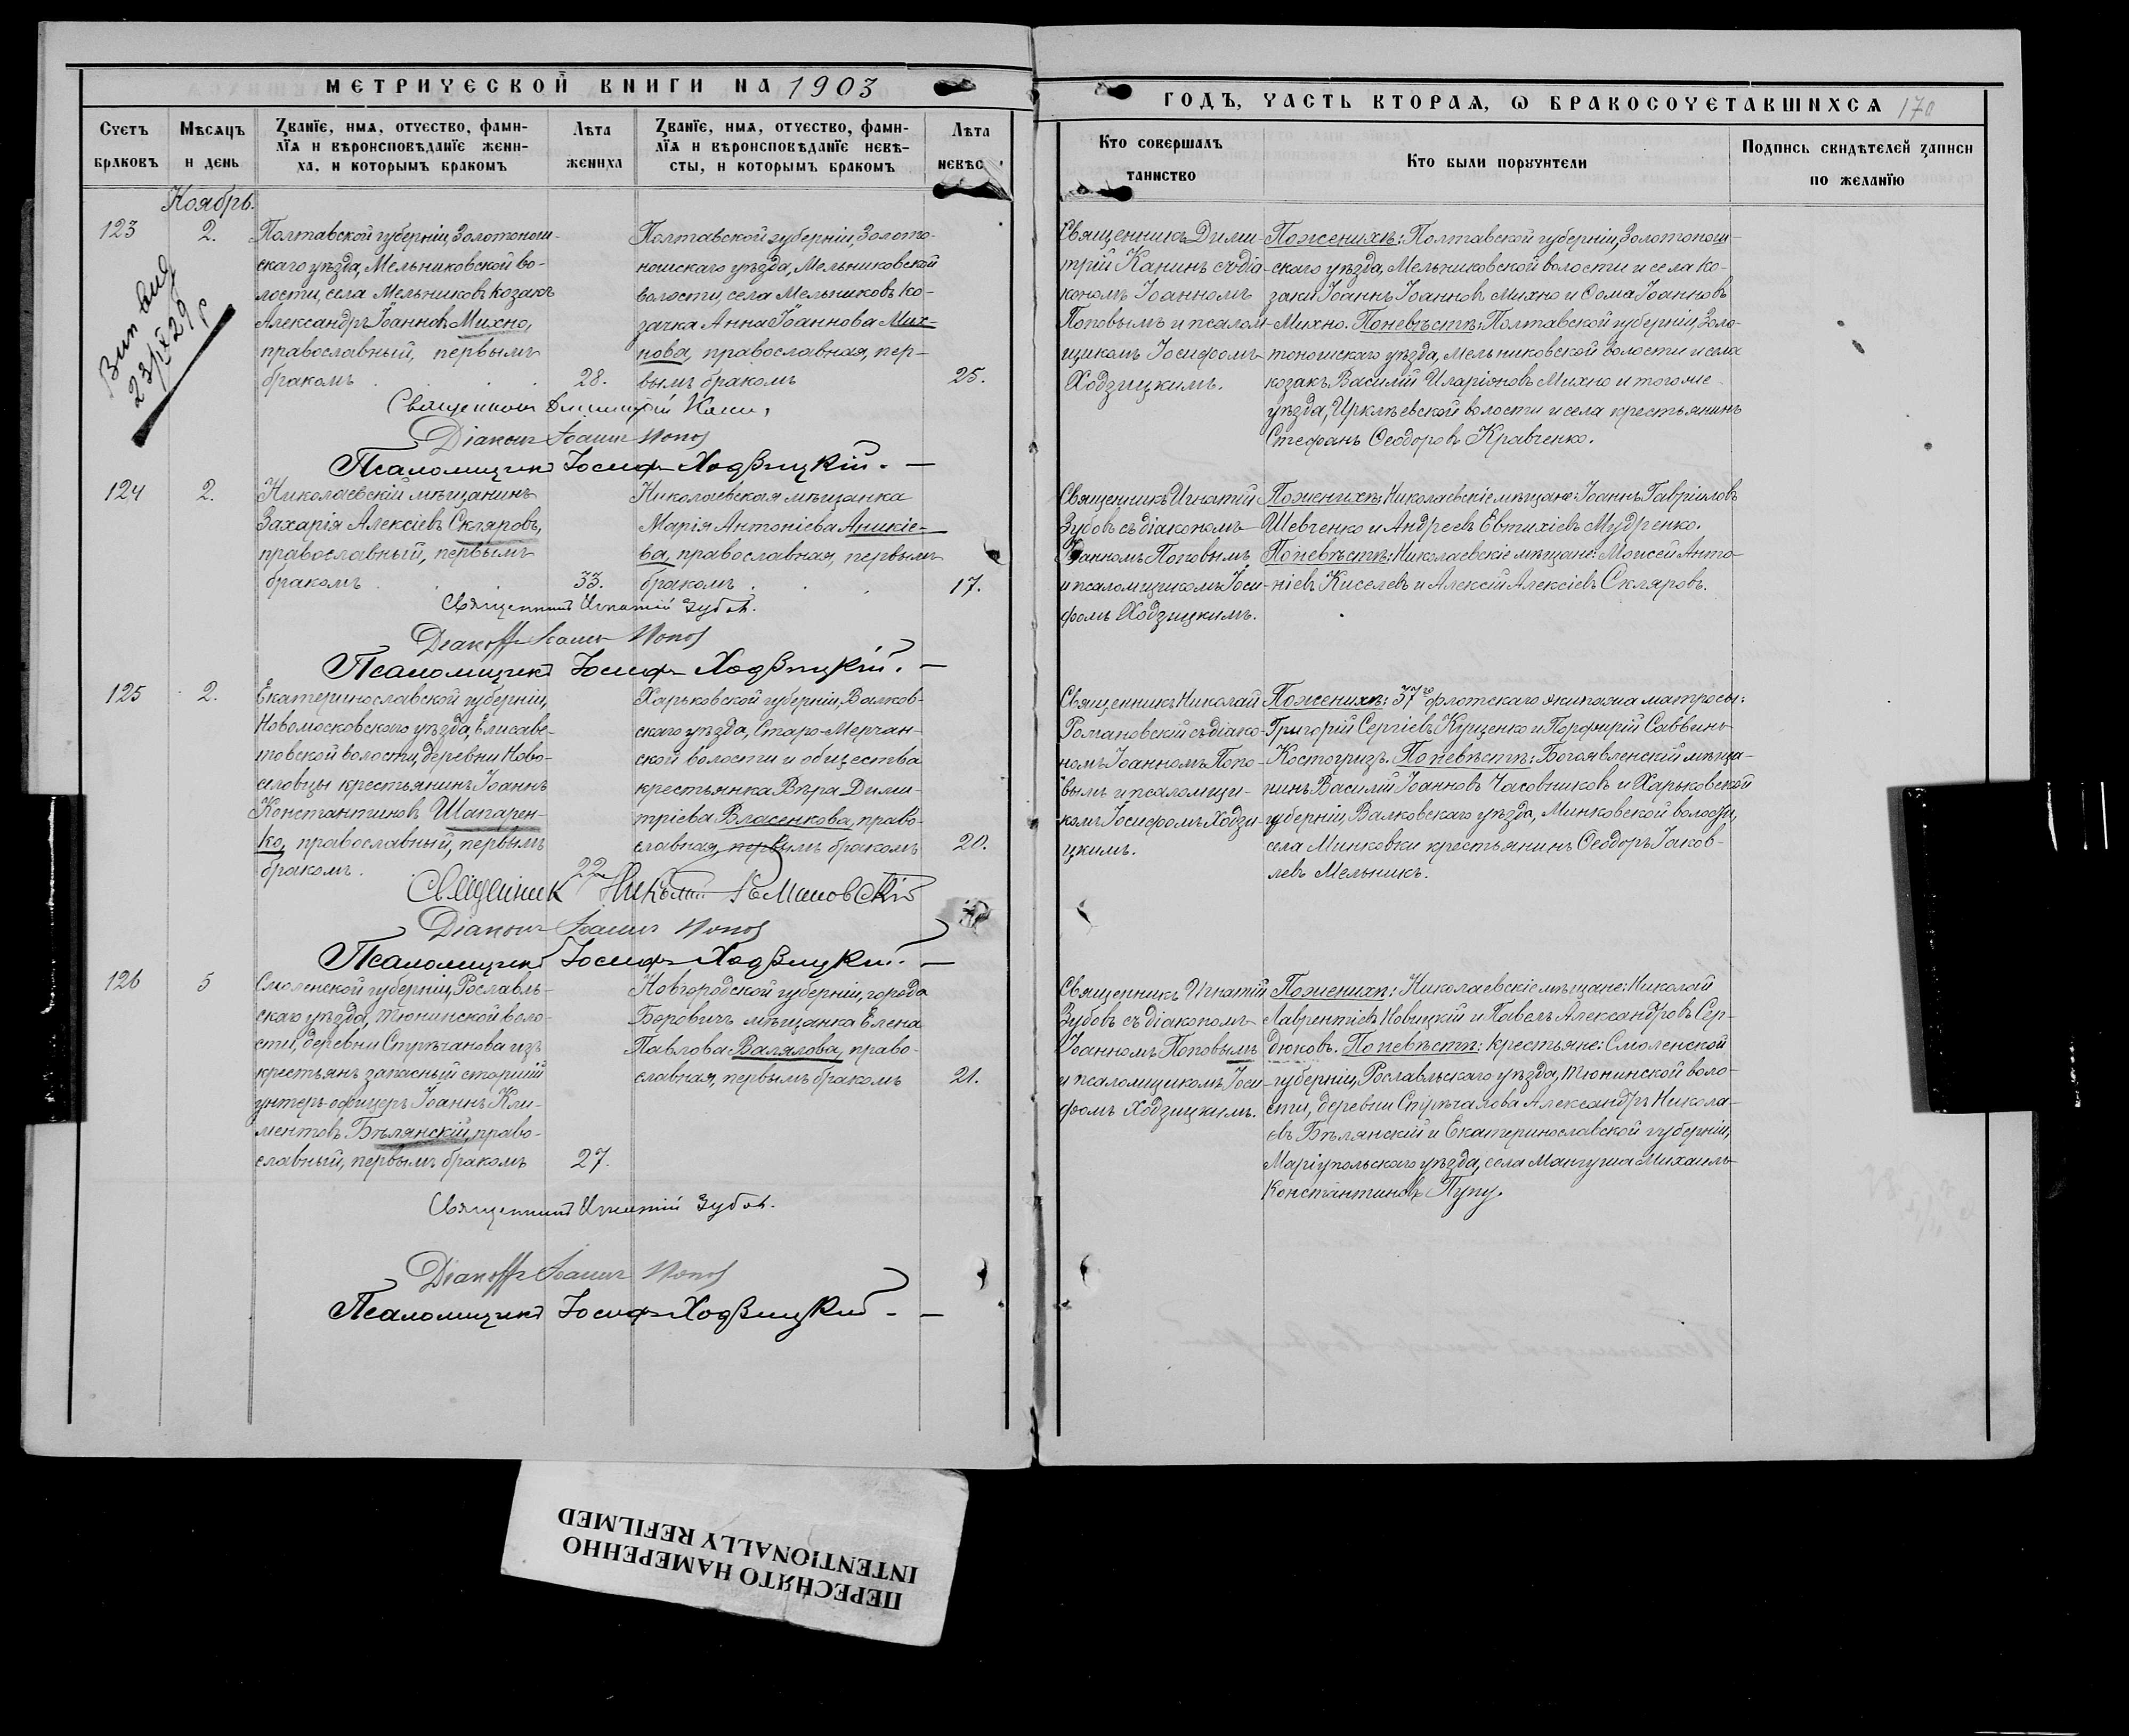 МЕТРИЧЕСКОЙ КНИГИ НА 1903
Счетъ браковъ
Мѣсяцъ и день
Званіе, имя, отчество, фами-
лія и вѣроисповѣданіе жени-
ха, и которымъ бракомъ
Лѣта жениха
Званіе, имя, отчество, фами-
лія и вѣроисповѣданіе невѣ-
сты, и которымъ бракомъ
Лѣта
невѣс
ГОДЪ, ЧАСТЬ ВТОРАЯ, Ѡ БРАКОСОЧЕТАВШИХСЯ 170
Кто совершалъ
таинство
Кто были поручители
Подпись свидѣтелей записи
по желанію
Ноябрь.
123
2.
23/IX 29 р
Полтавской губерніи, Золотонош-
скаго уѣзда, Мельниковской во-
лости, села Мельниковъ козакъ
Александръ Іоанновъ Михно,
православный, первымъ
бракомъ
28.
Полтавской губерніи, Золото-
ношскаго уѣзда, Мельниковской
волости, села Мельниковъ ко-
зачка Анна Іоаннова Мих-
нова, православная, пер-
вымъ бракомъ
25.
Священникъ Дими-
трій Канинъ съ діа-
кономъ Іоанномъ
Поповымъ и псалом-
щикомъ Іосифомъ
Ходзицкимъ.
По женихѣ: Полтавской губерніи, Золотонош-
скаго уѣзда, Мельниковской волости и села ко-
заки Іоаннъ Іоанновъ Михно и Ѳома Іоанновъ
Михно. По невѣстѣ: Полтавской губерніи, Золо-
тоношскаго уѣзда, Мельниковской волости и села
козакъ Василій Иларіоновъ Михно и того же
уѣзда, Ирклѣевской волости и села крестьянинъ
Стефанъ Ѳеодоровъ Кравченко.
Священникъ Димитрій Канин
Діаконъ Іоаннъ Попов
Псаломщикъ Іосифъ Ходзицкій. —
124
2.
Николаевскій мѣщанинъ
Захарія Алексіевъ Скляровъ,
православный, первымъ
бракомъ
33.
Николаевская мѣщанка
Марія Антоніева Аникіе-
ва, православная, первымъ
бракомъ
17.
Священникъ Игнатій
Зубовъ съ діакономъ
Іоанномъ Поповымъ
и псаломщикомъ Іоси-
фомъ Ходзицкимъ.
По женихѣ: Николаевскіе мѣщане: Іоаннъ Гавріиловъ
Шевченко и Андреевъ Евтихіевъ Мудренко.
По невѣстѣ: Николаевскіе мѣщане: Моисей Анто-
ніевъ Киселевъ и Алексій Алексіевъ Скляровъ.
Священникъ Игнатій Зубовъ.
Діаконъ Іоаннъ Попов
Псаломщикъ Іосифъ Ходзицкій. —
125
2.
Екатеринославской губерніи,
Новомосковскаго уѣзда, Елисаве-
товской волости, деревни Ново-
селовцы крестьянинъ Іоаннъ
Константиновъ Шапарен-
ко, православный, первымъ
бракомъ
22
Харьковской губерніи, Валков-
скаго уѣзда, Старо-Мерчан-
ской волости и общества
крестьянка Вѣра Дими-
тріева Власенкова, право-
славная, первымъ бракомъ
20.
Священникъ Николай
Романовскій съ діако-
номъ Іоанномъ Попо-
вымъ и псаломщи-
комъ Іосифомъ Ходзи-
цкимъ.
По женихѣ: 37го флотскаго экипажа матросы:
Григорій Сергіевъ Куценко и Порфирій Саввинъ
Костогризъ. По невѣстѣ: Богоявленскій мѣща-
нинъ Василій Іоанновъ Часовниковъ и Харьковской
губерніи, Валковскаго уѣзда, Минковской волости,
села Минковки крестьянинъ Ѳеодоръ Іаков-
левъ Мельникъ.
Священникъ Николай Романовскій
Діаконъ Іоаннъ Попов
Псаломщикъ Іосифъ Ходзицкій. —
126
5
Смоленской губерніи, Рославль-
скаго уѣзда, Тюнинской воло-
сти, деревни Стрѣчанова изъ
крестьянъ запасный старшій
унтеръ-офицеръ Іоаннъ Кли-
ментовъ Бѣлянскій, право-
славный, первымъ бракомъ
27.
Новгородской губерніи, города
Боровичъ мѣщанка Елена
Павлова Валялова, право-
славная, первымъ бракомъ
21.
Священникъ Игнатій
Зубовъ съ діакономъ
Іоанномъ Поповымъ
и псаломщикомъ Іоси-
фомъ Ходзицкимъ.
По женихѣ: Николаевскіе мѣщане: Николай
Лаврентіевъ Новицкій и Павелъ Александровъ Сер-
дюковъ. По невѣстѣ: крестьяне: Смоленской
губерніи, Рославльскаго уѣзда, Тюнинской воло-
сти, деревни Стрѣчалова Александръ Никола-
евъ Бѣлянскій и Екатеринославской губерніи,
Маріупольскаго уѣзда, села Мангуша Михаилъ
Константиновъ Пупу.
Священникъ Игнатій Зубовъ.
Діаконъ Іоаннъ Попов
Псаломщикъ Іосифъ Ходзицкій. —
ПЕРЕСНЯТО НАМЕРЕННО
INTENTIONALLY REFILMED